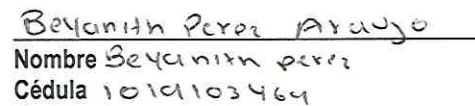 Beyanith Perez Araujo
Nombre Beyanith perez
Cédula 1019103464